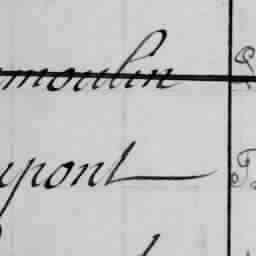 moulin
upont